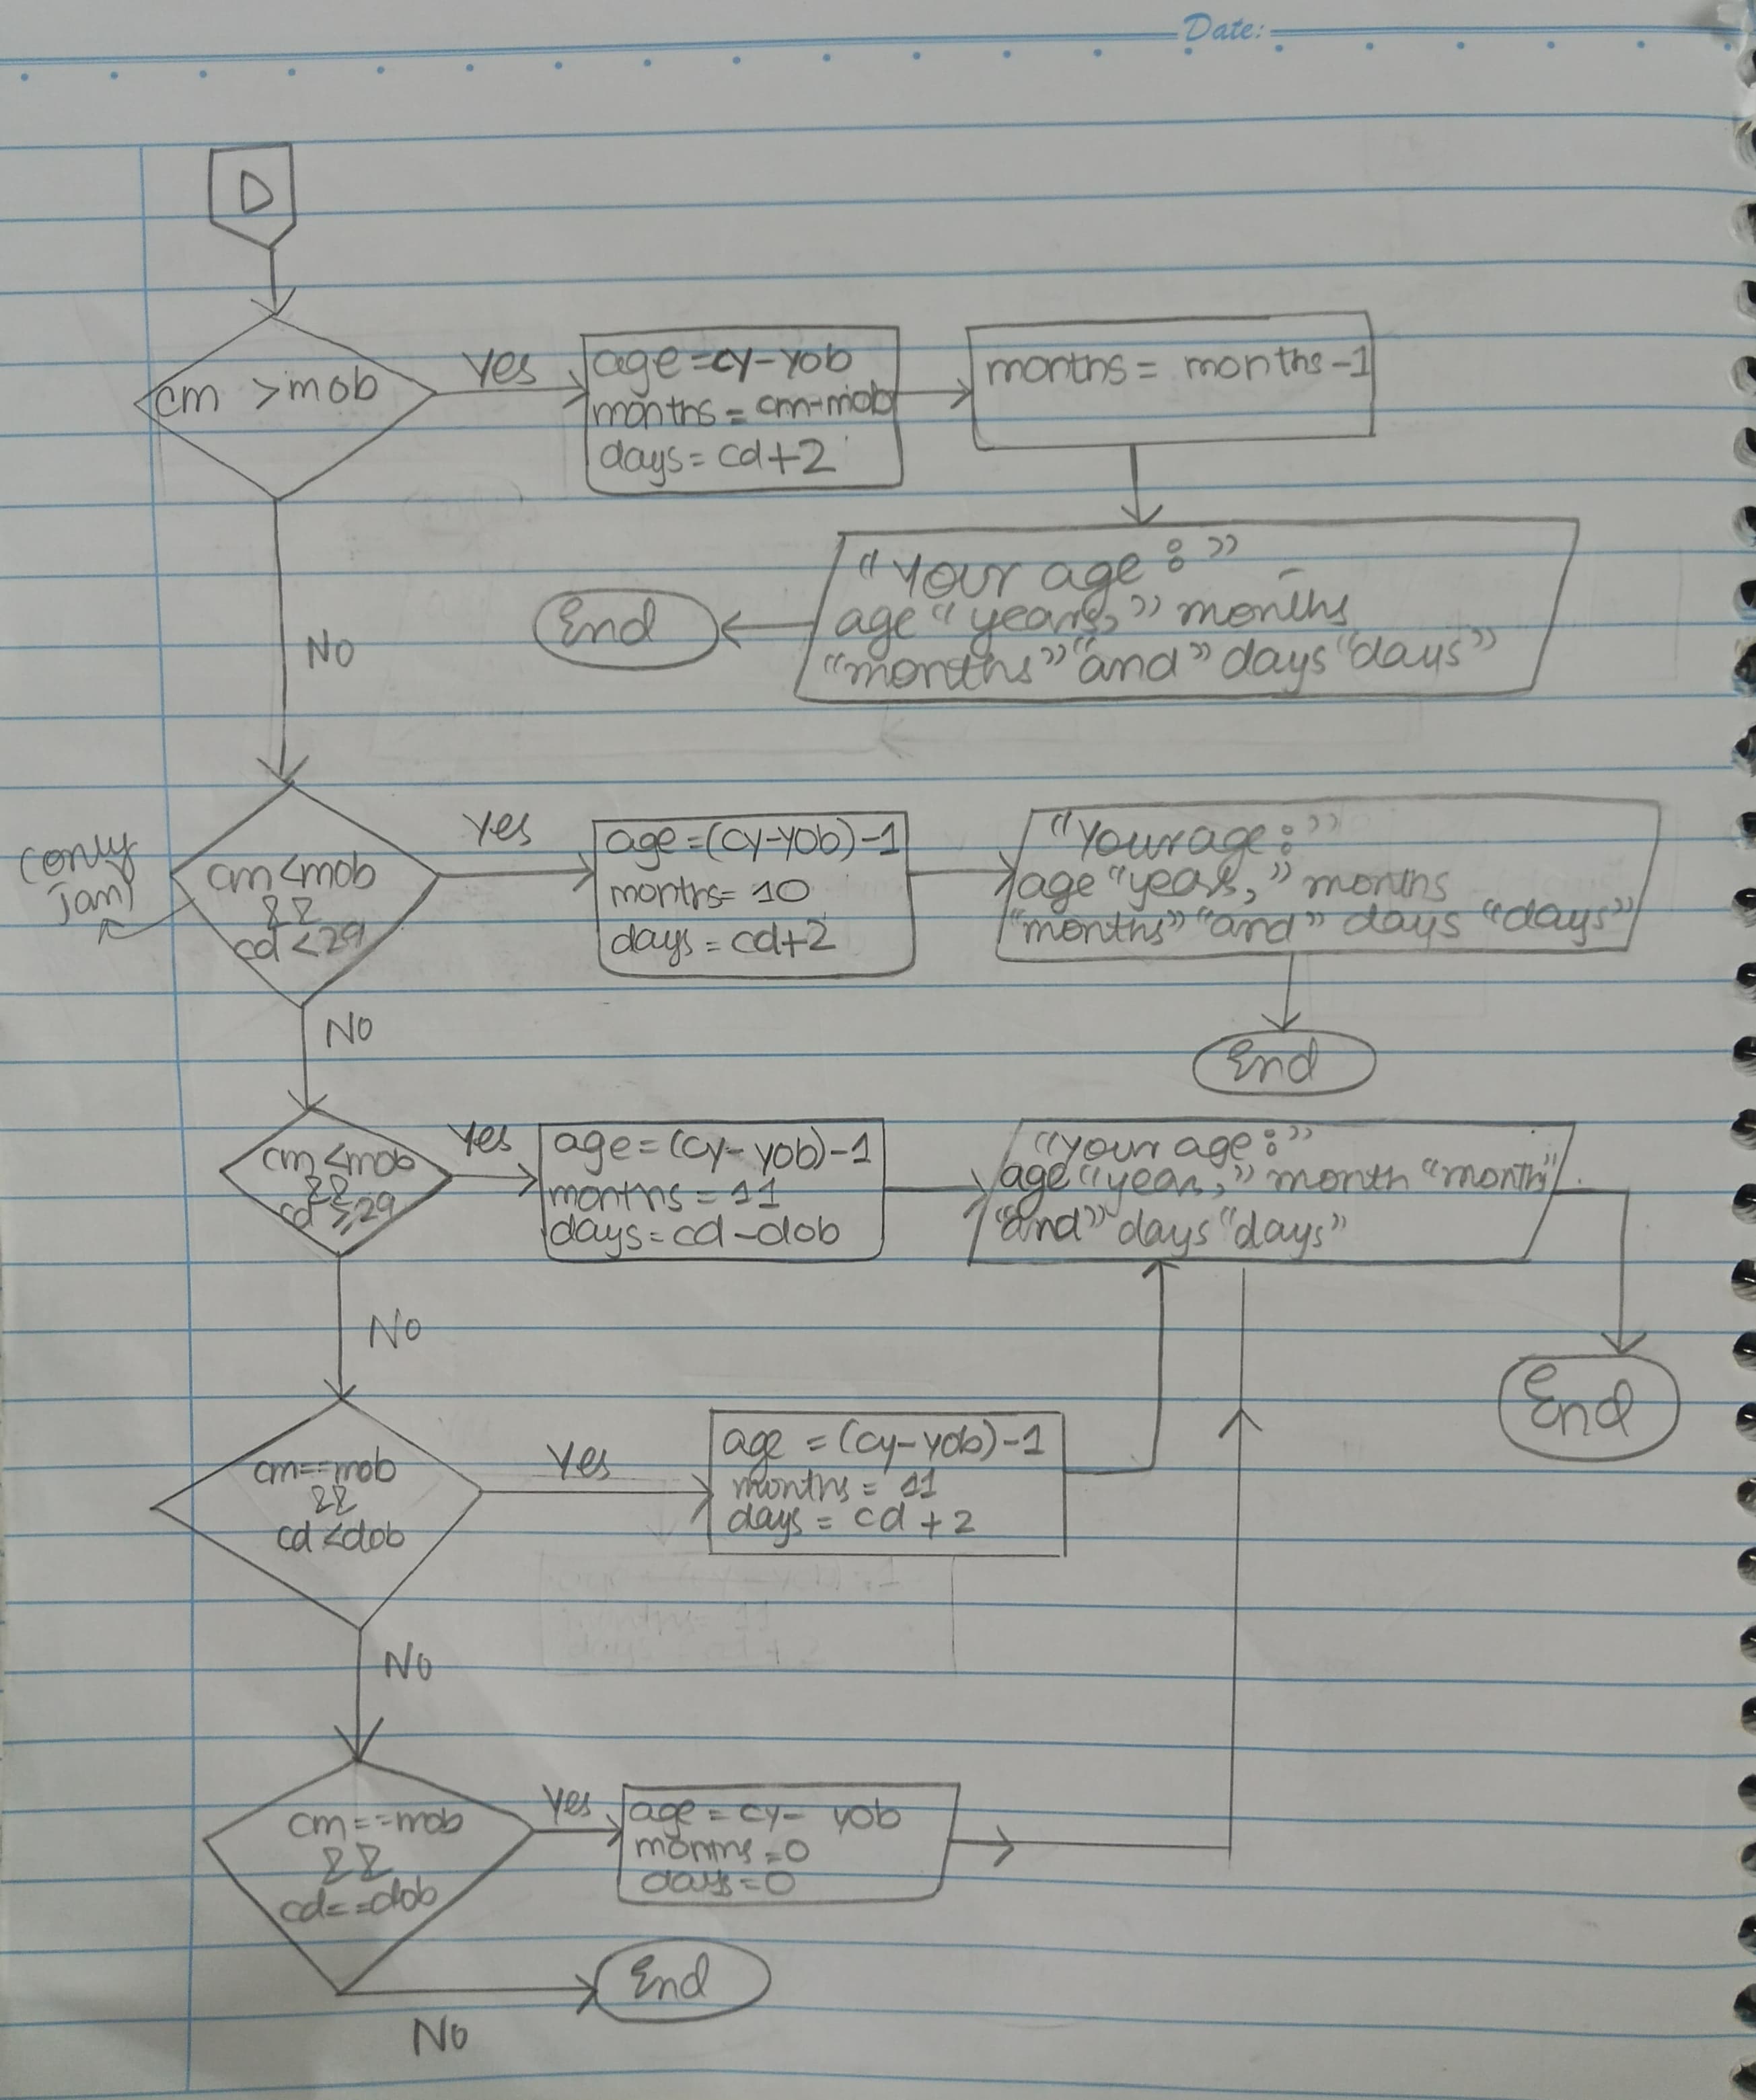 Date:
D
cm > mob
Yes
age = cy - yob
months = cm - mob
days = cd + 2
months = months - 1
"Your age:"
age "years," months
"months" "and" days "days"
End
No
(only
jan)
cm < mob
&&
cd < 29
Yes
age = (cy - yob) - 1
months = 10
days = cd + 2
"Your age:"
age "years," months
"months" "and" days "days"
End
No
cm < mob
&&
cd ≥ 29
Yes
age = (cy - yob) - 1
months = 11
days = cd - dob
"your age:"
age "year," month "month"
"and" days "days"
End
No
cm == mob
&&
cd < dob
Yes
age = (cy - yob) - 1
months = 11
days = cd + 2
No
cm == mob
&&
cd == dob
Yes
age = cy - yob
months = 0
days = 0
No
End